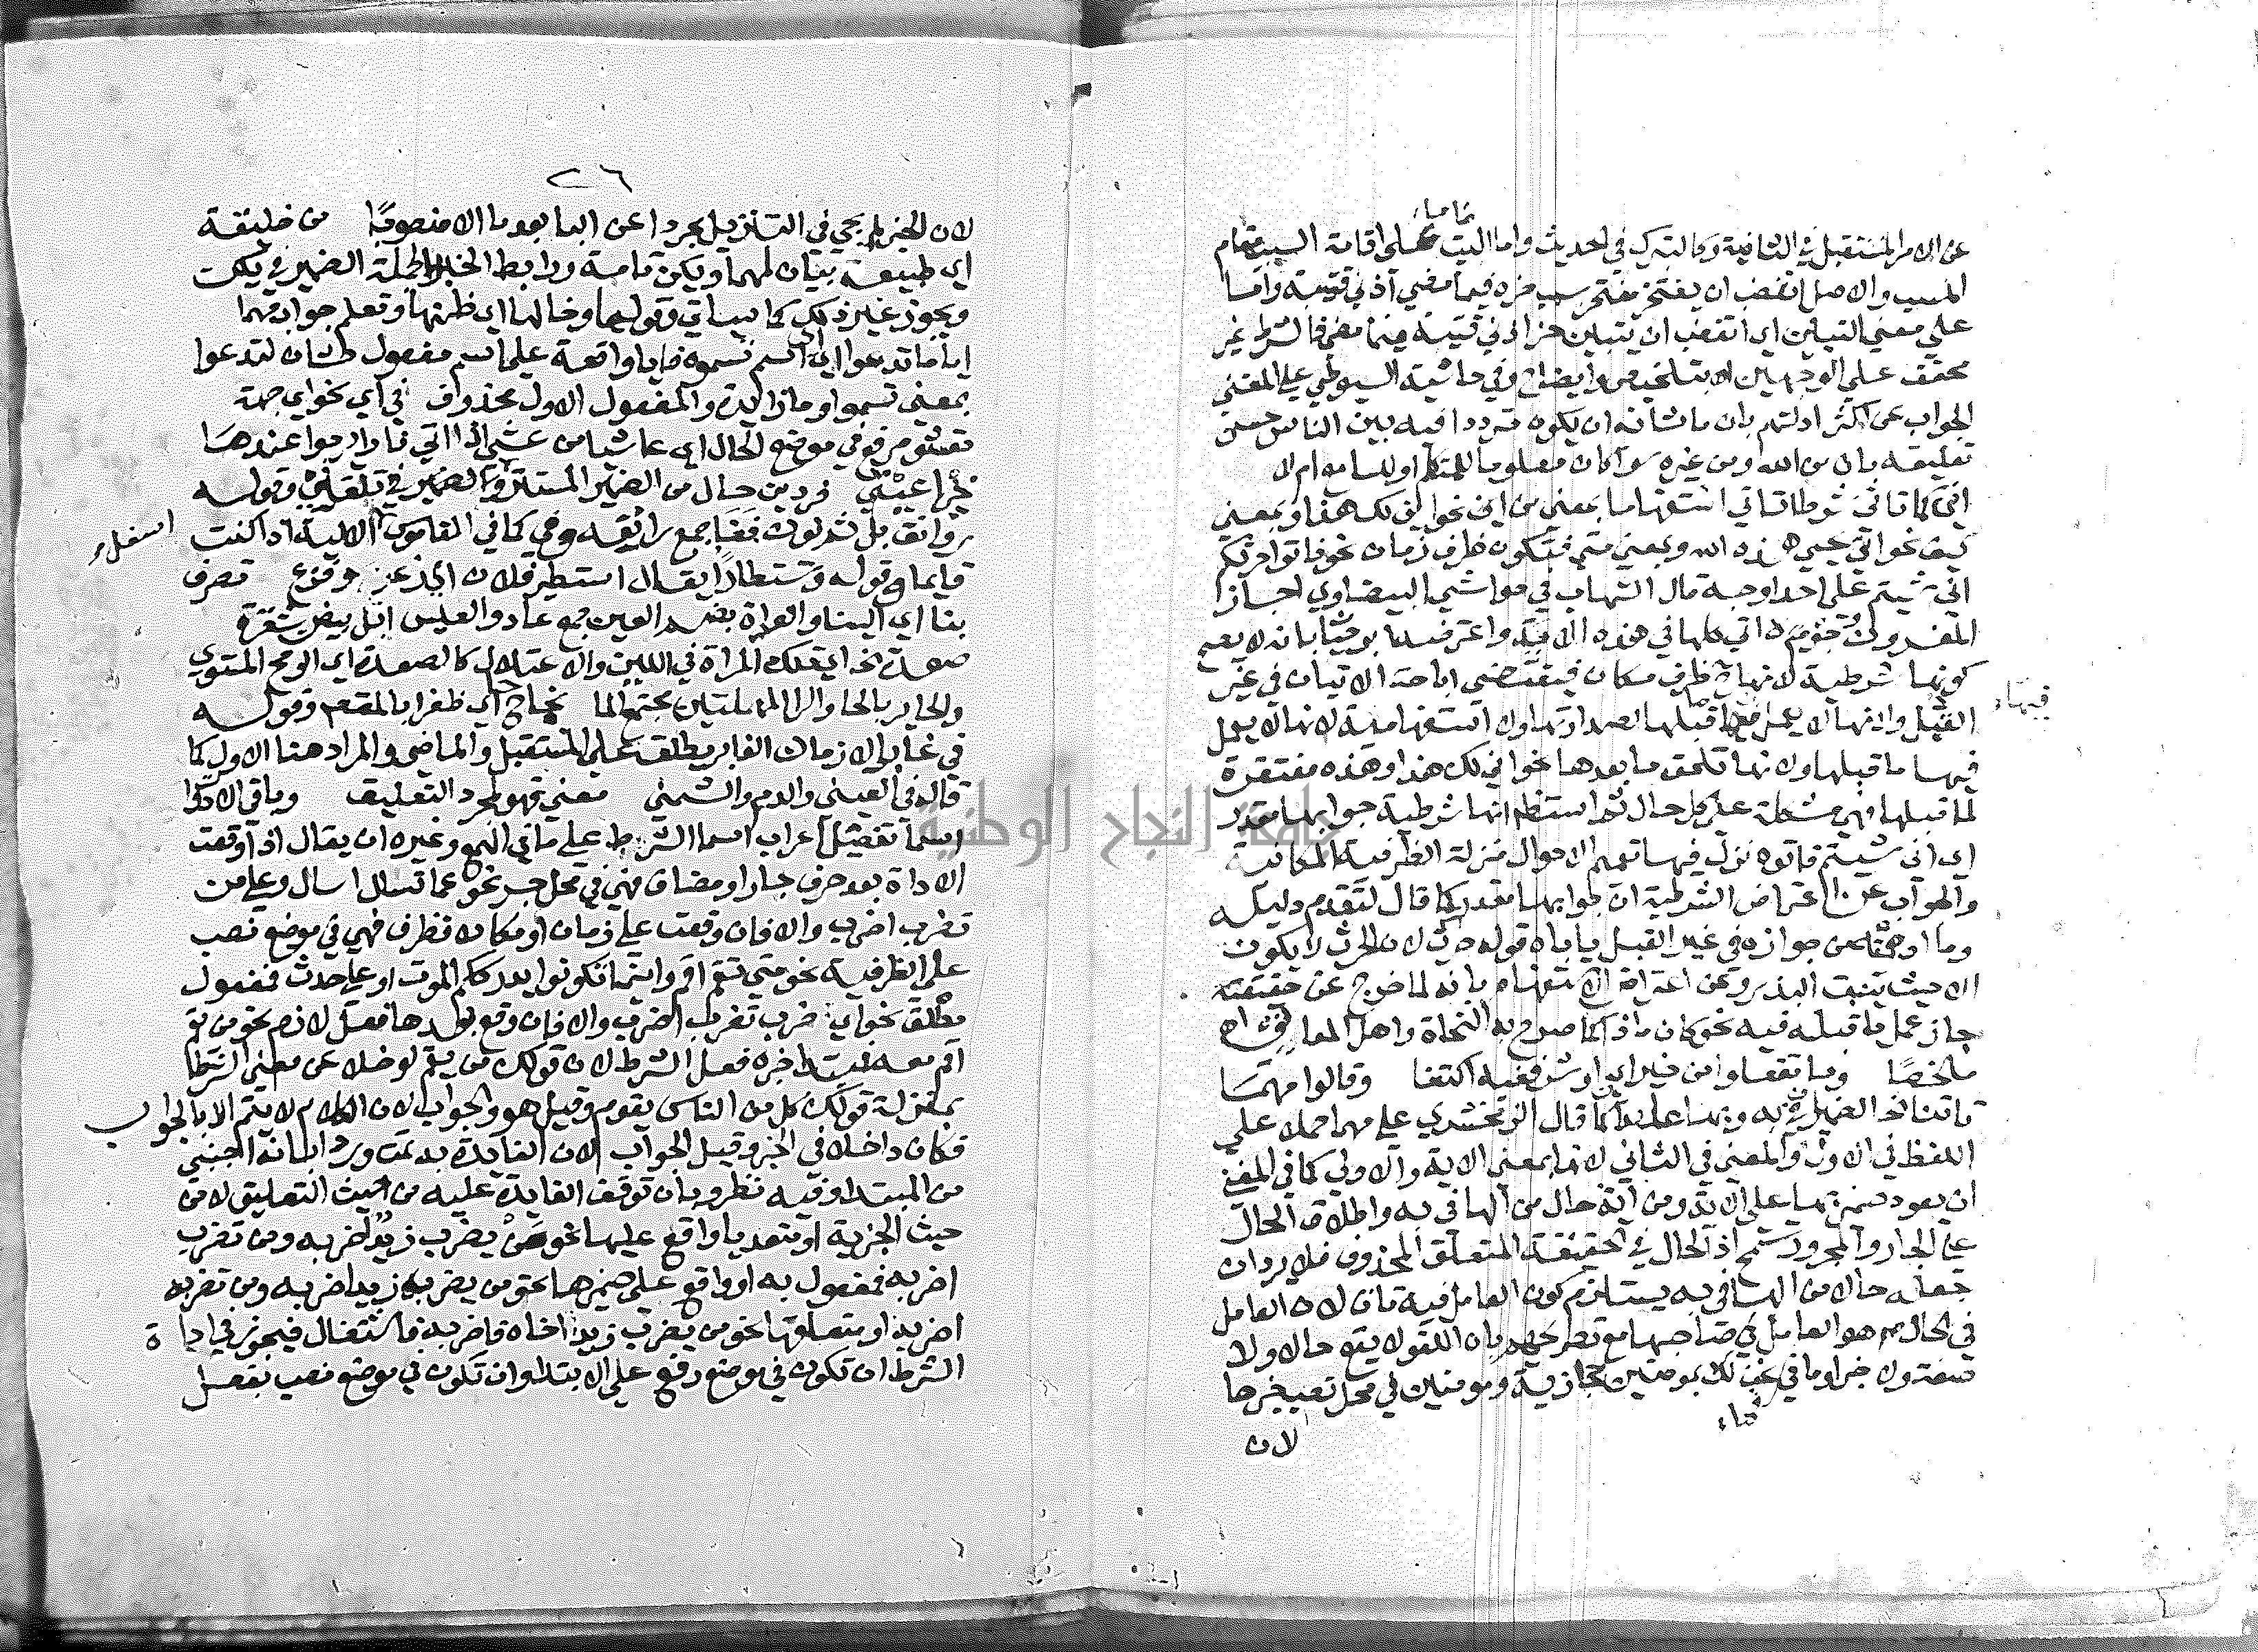 عن الامر المستقبل في الثانية وكالترك في الحديث واما البيت فعلى اقامة السبب مقام
تماما
المسبب والاصل اتغضب ان يفتخر مفتخر بسبب حزه فيما مضى اذني قتيبة واما
على معنى التبيين اي اتغضب ان يتبين حز اذني قتيبة فيما مضى فالشرط غير
محقق على الوجهين اه بتلخيص وايضاح وفي حاشية السيوطي على المغني
الجواب عن اكثر ادلتهم بان ما شانه ان يكون مترددا فيه بين الناس حسن
تعليقه بان من الله ومن غيره سوا كان معلوما للمتكلم او للسامع ام لا
انى كما تاتي شرطا تاتي استفهاما بمعنى من اين نحو انى لك هذا وبمعنى
كيف نحو انى يحيي هذه الله وبمعنى متى فتكون ظرف زمان نحو فاتوا حرثكم
انى شيتم على احد اوجه قال الشهاب في حواشي البيضاوي اجاز
المفسرون جميع معاني كلها في هذه الاية واعترض بانه لا يصح
كونها شرطية لانها ظرف مكان فيقتضي اباحة الاتيان في غير
القبل ولانها لا يعمل فيها ما قبلها لصدارتها ولا استفهامية لانها لا يعمل
فيها
فيها ما قبلها ولانها تلحق ما بعدها نحو انى لك هذا وهذه مفتقرة
لما قبلها فهي مشكلة على كل حال ثم استظهر انها شرطية جوابها مقدر
اي انى شيتم فاتوه نزل فيها تعميم الاحوال منزلة الظرفية المكانية
والجواب عن اعتراض الشرطية ان جوابها مقدر كما قال لتقدم دليله
وما اوهمته من جوازه في غير القبل ياباه قوله حرث لان الحرث لا يكون
الا حيث ينبت البذر وعن اعتراض الاستفهام بانه لما خرج عن حقيقته
جاز عمل ما قبله فيه نحو كان ماذا كما صرح به النحاة واهل المعاني اه
ملخصا وما تفعلوا من خير اي او شر ففيه اكتفا وقالوا مهما
تاتنا به الضمير في به وبها عايد كما قال الزمخشري على مهما حملا على
اللفظ في الاول والمعنى في الثاني لانها بمعنى الاية والاولى كما في المغني
ان يعود ضمير بها على الاية ومن اية حال من الها في به واطلاق الحال
على الجار والمجرور تسمح اذ الحال في الحقيقة المتعلق المحذوف فلا يرد ان
جعله حالا من الها في به يستلزم كون العامل فيه تاتنا لان العامل
في الحال هو العامل في صاحبها مع تصريحهم بان اللغو لا يقع حالا ولا
صفة ولا خبرا وما في نحن لك بمومنين حجازية ومومنين في محل نصب خبرها
لان
٢٦
لان الخبر لم يجي في التنزيل مجردا عن البا بعد ما الا منصوبا من خليقة
اي طبيعة بيان لمهما ويكن تامة ورابط الخبر والجملة الضمير في يكن
ويجوز غير ذلك كما سياتي وقوله وخالها اي ظنها وتعلم جواب مهما
ايا ما تدعوا اي اي اسم تسموه فايا واقعة على اسم مفعول ثان لتدعوا
بمعنى تسموا وما زائدة والمفعول الاول محذوف في اي نحو اي جهة
تعشو مرفوع في موضع الحال اي عاشيا من عشى اذا اتى نارا يرجوا عندها
خيرا فردين حال من الضمير المستتر والضمير في تلقني وقوله
روانف بل تثنى لونه فقفا جمع رانقة وهي كما في القاموس الالية اذا كنت
اسفل
قايما وقوله وتستطارا يقال استطير فلان اي ذعر وفزع تصرف
بنا اي البنا والعداة بضم العين جمع عاد والعيس ابل بيض بشقرة
صعدة الخ اي تلك المراة في اللين والاعتدال كالصعدة اي الرمح المستوي
والحاير بالحا والرا المهملتين مجتمع الما نجاحا اي ظفرا بالمقصد وقوله
في غابر الازمان الغابر يطلق على المستقبل والماضي والمراد هنا الاول كما
قاله في العيني والدم والشمني معنى فهو لمجرد التعليق وباقي الادوات
اسما تفصيل اعراب اسما الشرط على ما في الهمع وغيره ان يقال اذا وقعت
الاداة بعد حرف جار او مضاف فهي في محل جر نحو عما تسال اسال وغلام من
تضرب اضرب والا فان وقعت على زمان او مكان فظرف فهي في موضع نصب
على الظرفية نحو متى تقم اقم واينما تكونوا يدرككم الموت او على حدث فمفعول
مطلق نحو اي ضرب تضرب اضرب والا فان وقع بعدها فعل لازم نحو من يقم
اقم معه فمبتدا خبره فعل الشرط لان قولك من يقم لو خلا عن معنى الشرط
بمنزلة قولك كل من الناس يقوم وقيل هو والجواب لان الكلام لا يتم الا بالجواب
فكان داخلا في الخبر وقيل الجواب لان الفايدة به تمت ورد بانه اجنبي
من المبتدا وفيه نظر وبان توقف الفايدة عليه من حيث التعليق لا من
حيث الخبرية او متعد يا واقع عليها نحو من يضرب زيد اضربه ومن تضرب
اضربه فمفعول به او واقع على ضميرها نحو من يضربه زيد اضربه ومن تضربه
اضربه او متعلقها نحو من يضرب زيد اخاه فاضربه فاشتغال فيجوز في اداة
الشرط ان تكون في موضع رفع على الابتدا وان تكون في موضع نصب بفعل
جامعة النجاح الوطنية